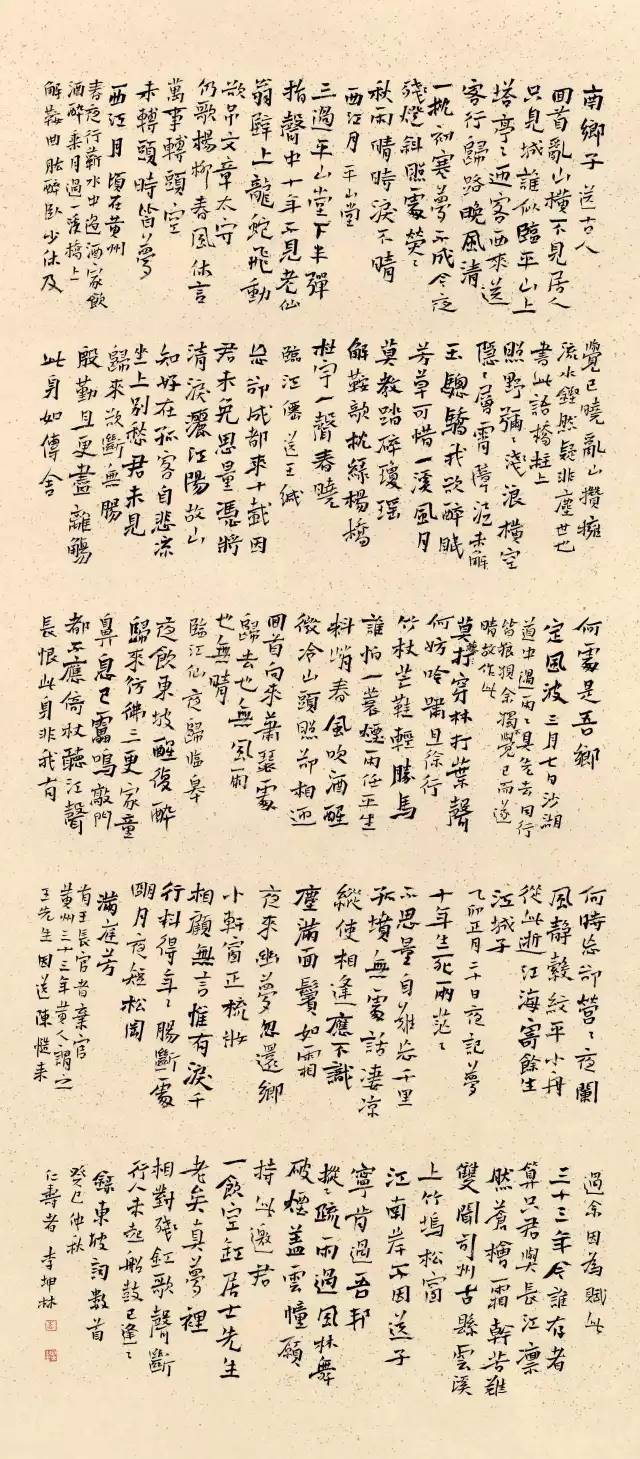 南鄉子 送古人
回首亂山橫不見居人
只見城誰似臨平山上
塔亭〻迎客西來送
客行歸路晚風清
一枕初寒夢不成今夜
殘燈斜照處熒〻
秋雨晴時淚不晴
西江月 平山堂
三過平山堂下半彈
指聲中十年不見老仙
翁壁上龍蛇飛動
欲吊文章太守
仍歌楊柳春風休言
萬事轉頭空
未轉頭時皆夢
西江月 頃在黃州
春夜行蘄水中過酒家飲
酒醉乘月過一溪橋上
解鞍曲肱醉臥少休及
覺已曉亂山攢擁
流水鏗然疑非塵世也
書此語橋柱上
照野彌〻淺浪橫空
隱〻層霄障泥未解
玉驄驕我欲醉眠
芳草可惜一溪風月
莫教踏碎瓊瑤
解鞍欹枕綠楊橋
杜宇一聲春曉
臨江僊 送王緘
忘卻成都來十載因
君未免思量憑將
清淚灑江陽故山
知好在孤客自悲涼
坐上別愁君未見
歸來欲斷無腸
殷勤且更盡離觴
此身如傳舍
何處是吾鄉
定風波 三月七日沙湖
道中遇雨〻具先去同行
皆狼狽余獨覺已而遂
晴故作此
莫聽穿林打葉聲
何妨吟嘯且徐行
竹杖芒鞋輕勝馬
誰怕一蓑煙雨任平生
料峭春風吹酒醒
微冷山頭照卻相迎
回首向來蕭瑟處
歸去也無風雨
也無晴
臨江仙 夜歸臨皋
夜飲東坡醒復醉
歸來仿佛三更家童
鼻息已雷鳴敲門
都不應倚杖聽江聲
長恨此身非我有
何時忘卻營〻夜闌
風靜縠紋平小舟
從此逝江海寄餘生
江城子
乙卯正月二十日夜記夢
十年生死兩茫〻
不思量自難忘千里
孤墳無處話淒涼
縱使相逢應不識
塵滿面鬢如霜
夜來幽夢忽還鄉
小軒窗正梳妝
相顧無言惟有淚千
行料得年〻腸斷處
明月夜短松岡
滿庭芳
有王長官者棄官
黃州三十三年黃人謂之
王先生因送陳慥來
過余因為賦此
三十三年今誰存者
算只君與長江凜
然蒼檜霜幹苦難
雙聞司州古縣雲溪
上竹塢松窗
江南岸不因送子
寧肯過吾邦
摐〻疏雨過風林舞
破煙蓋雲幢願
持此邀君
一飲空缸居士先生
老矣真夢裡
相對殘釭歌聲斷
行人未起船鼓已逢〻
錄東坡詞數首
癸巳仲秋
仁壽者 李坤林